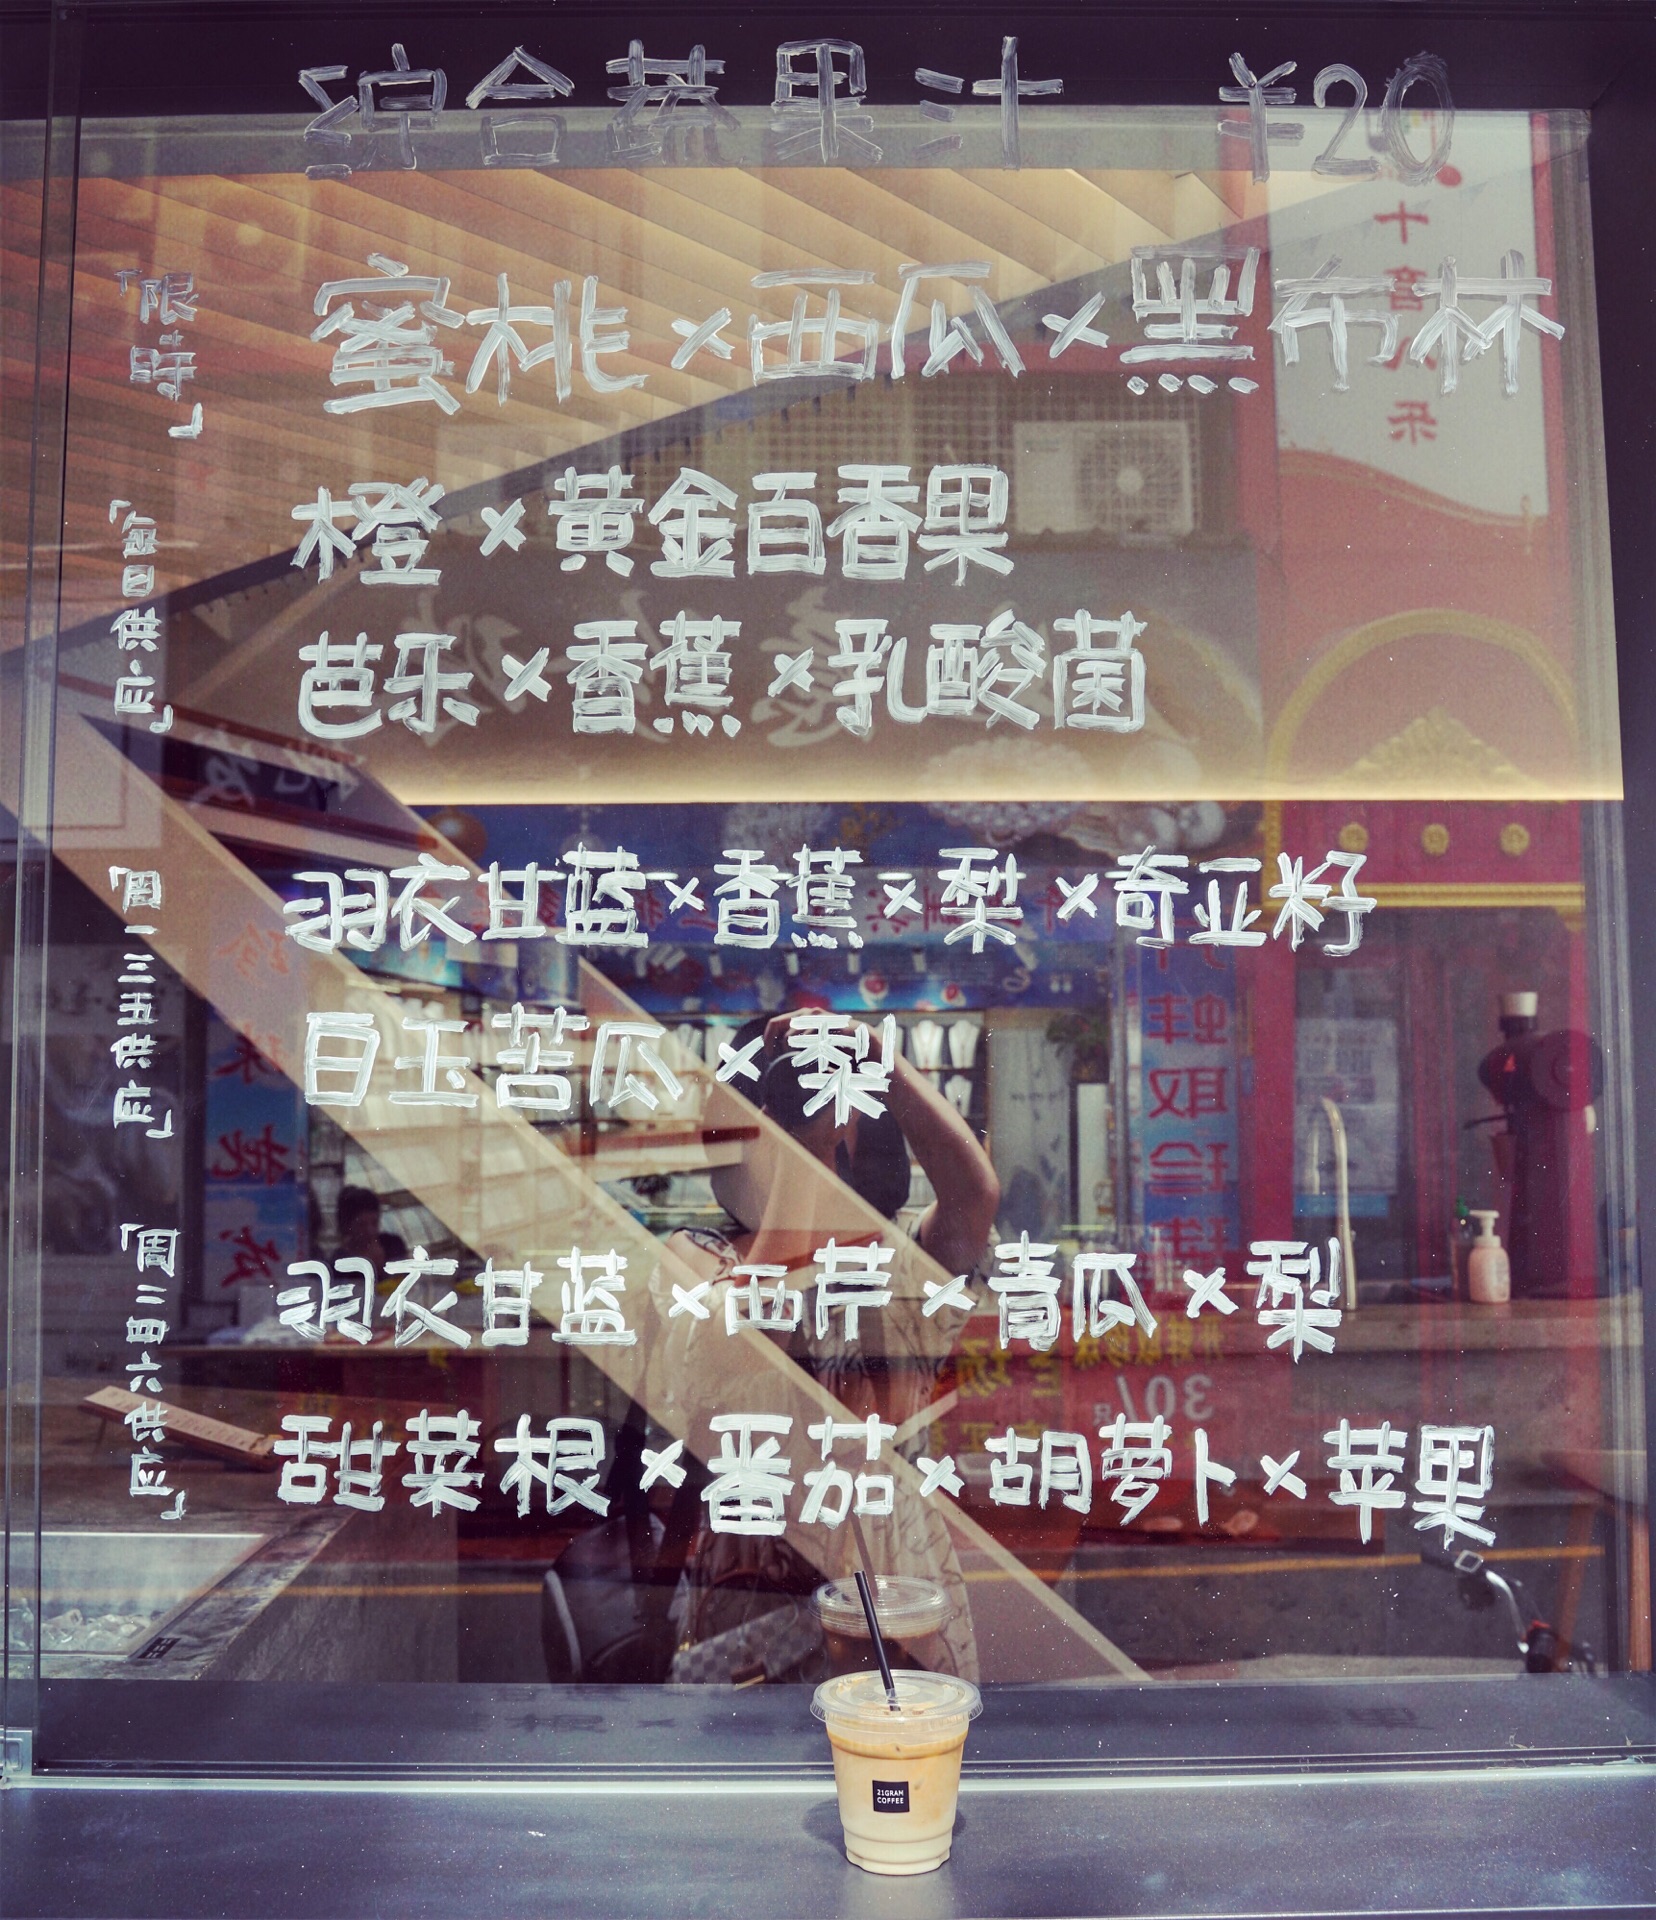 综合蔬果汁 ¥20
「限时」
蜜桃×西瓜×黑布林
「每日供应」
橙×黄金百香果
芭乐×香蕉×乳酸菌
「周一三五供应」
羽衣甘蓝×香蕉×梨×奇亚籽
白玉苦瓜×梨
「周二四六供应」
羽衣甘蓝×西芹×青瓜×梨
甜菜根×番茄×胡萝卜×苹果
21GRAM
COFFEE